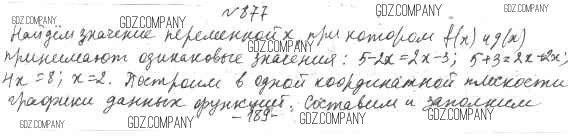 №877
GDZ.COMPANY GDZ.COMPANY GDZ.COMPANY
Найдём значение переменной x, при котором f(x) и g(x)
принимают одинаковые значения: 5-2x=2x-3; 5+3=2x+2x;
GDZ.COMPANY GDZ.COMPANY GDZ.COMPANY
4x=8; x=2. Построим в одной координатной плоскости
графики данных функций. Составим и заполним
GDZ.COMPANY GDZ.COMPANY
-189-
GDZ.COMPANY GDZ.COMPANY